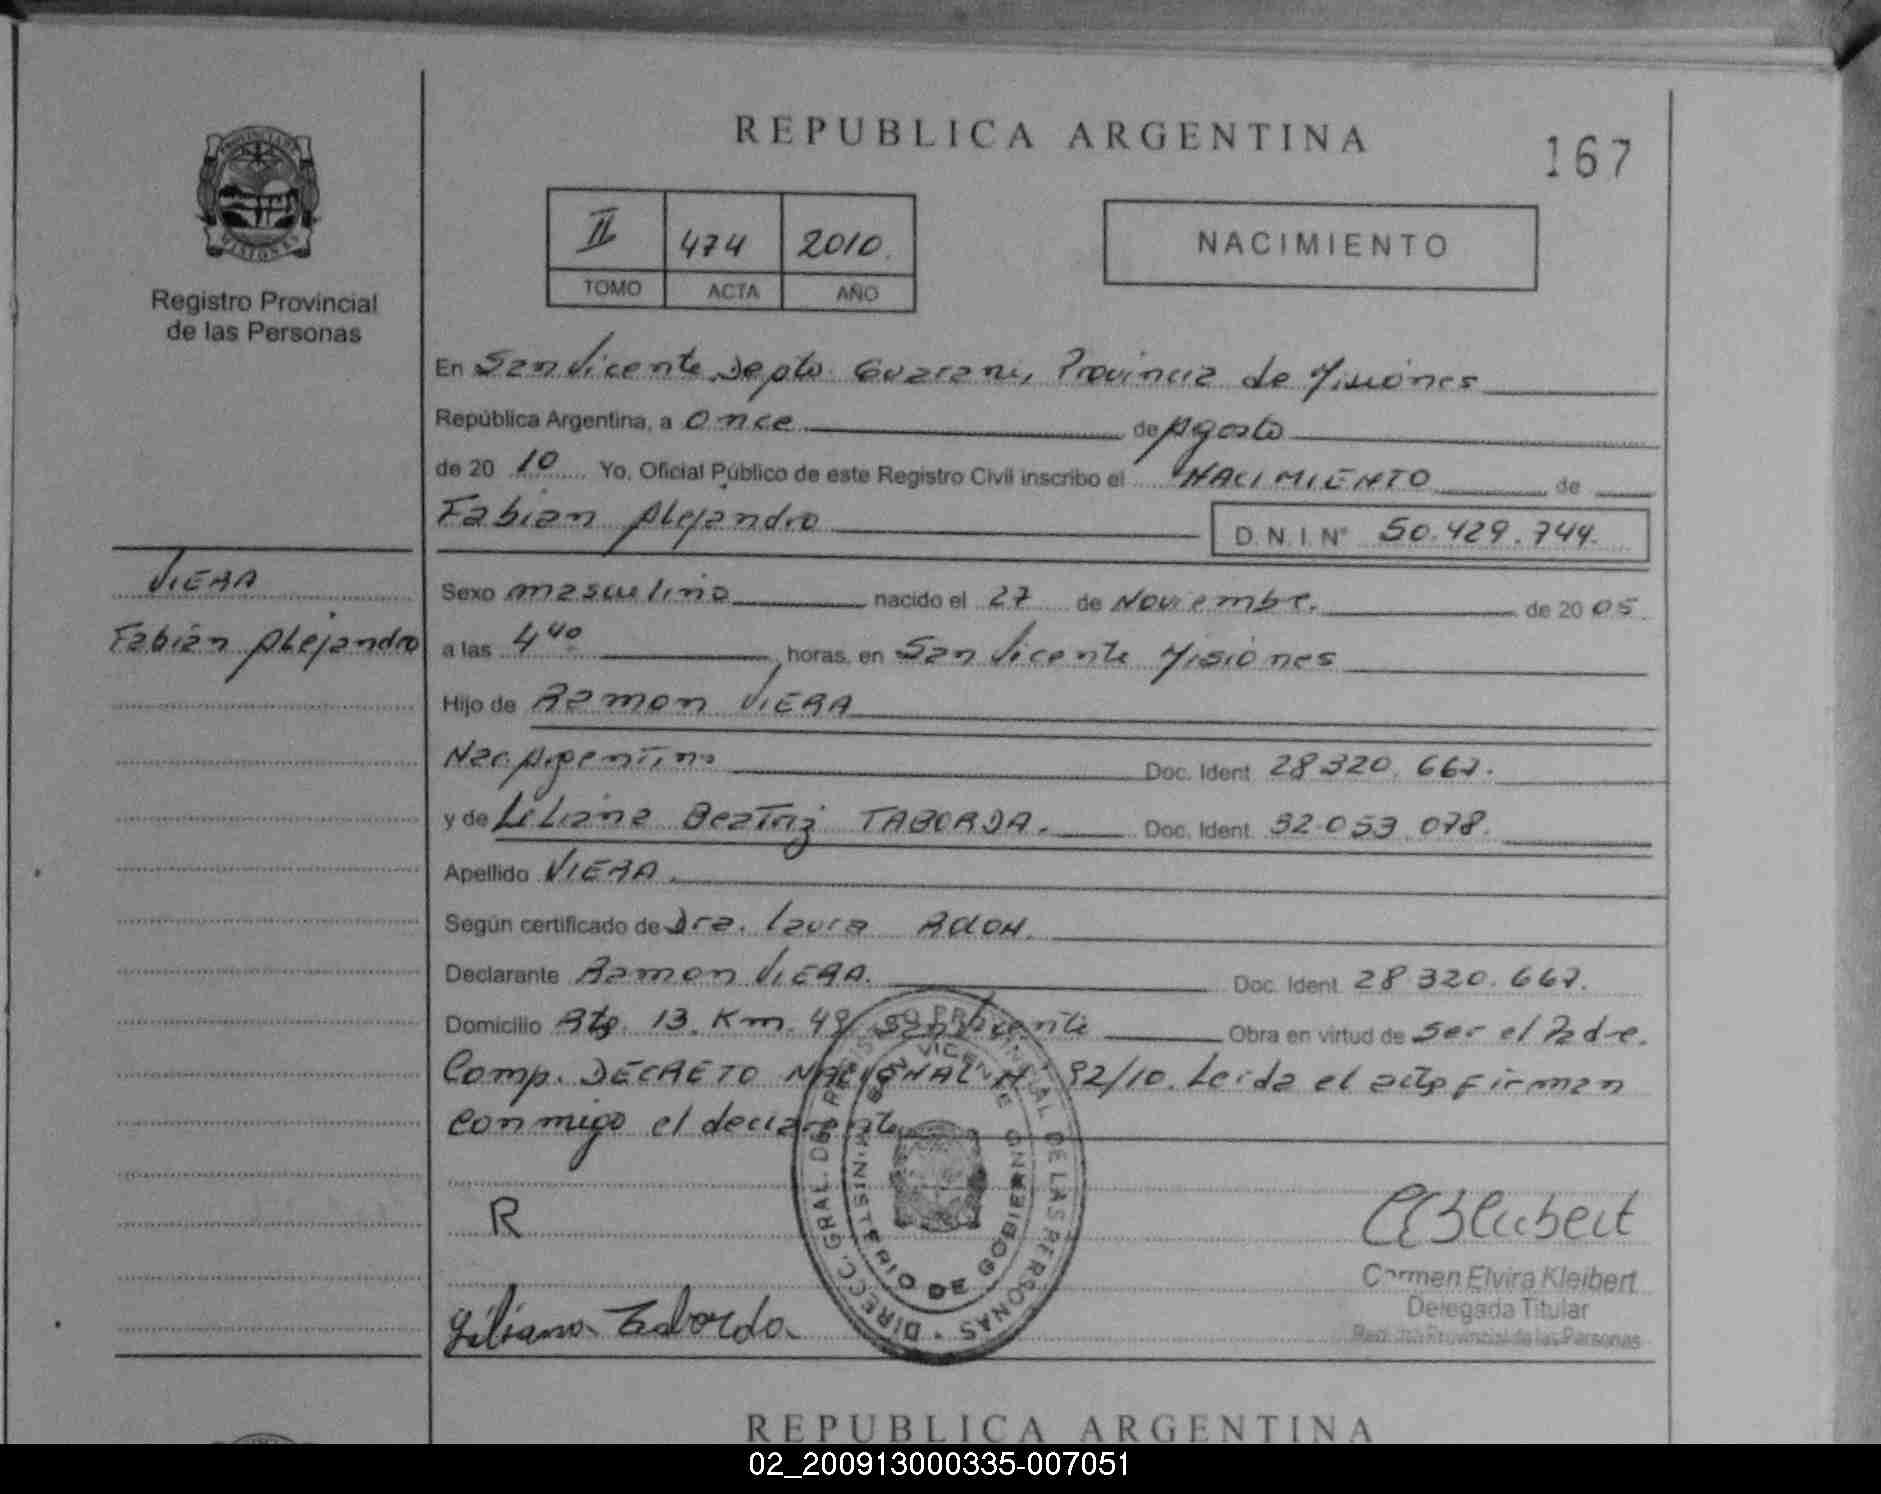 REPUBLICA ARGENTINA
167
II 474 2010.
TOMO ACTA AÑO
NACIMIENTO
PROVINCIA DE MISIONES
Registro Provincial
de las Personas
En San Vicente Depto Guarani, Provincia de Misiones
República Argentina, a once de Agosto
de 20 10 Yo, Oficial Público de este Registro Civil inscribo el NACIMIENTO de
Fabian Alejandro
D. N. I. N° 50.429.744.
VIERA
Fabián Alejandro
Sexo masculino nacido el 27 de Noviembre. de 20 05.
a las 4 40 horas, en San Vicente Misiones
Hijo de Ramon VIERA
Nac. Argentino Doc. Ident. 28 320. 667.
y de Liliana Beatriz TABORDA. Doc. Ident. 32.053.078.
Apellido VIERA.
Según certificado de Dra. Laura
Declarante Ramon VIERA. Doc. Ident. 28 320. 667.
Domicilio Rta. 13. Km. 49 San Vicente Obra en virtud de Ser el Padre.
Comp. DECRETO NACIONAL N 92/10. Leida el acta firman
conmigo el declarante
R
Liliana Taborda
DIRECC. GRAL. DEL REGISTRO PROVINCIAL DE LAS PERSONAS
SAN VICENTE
MINISTERIO DE GOBIERNO
Carmen Elvira Kleibert
Delegada Titular
Registro Provincial de las Personas
REPUBLICA ARGENTINA
02_200913000335-007051